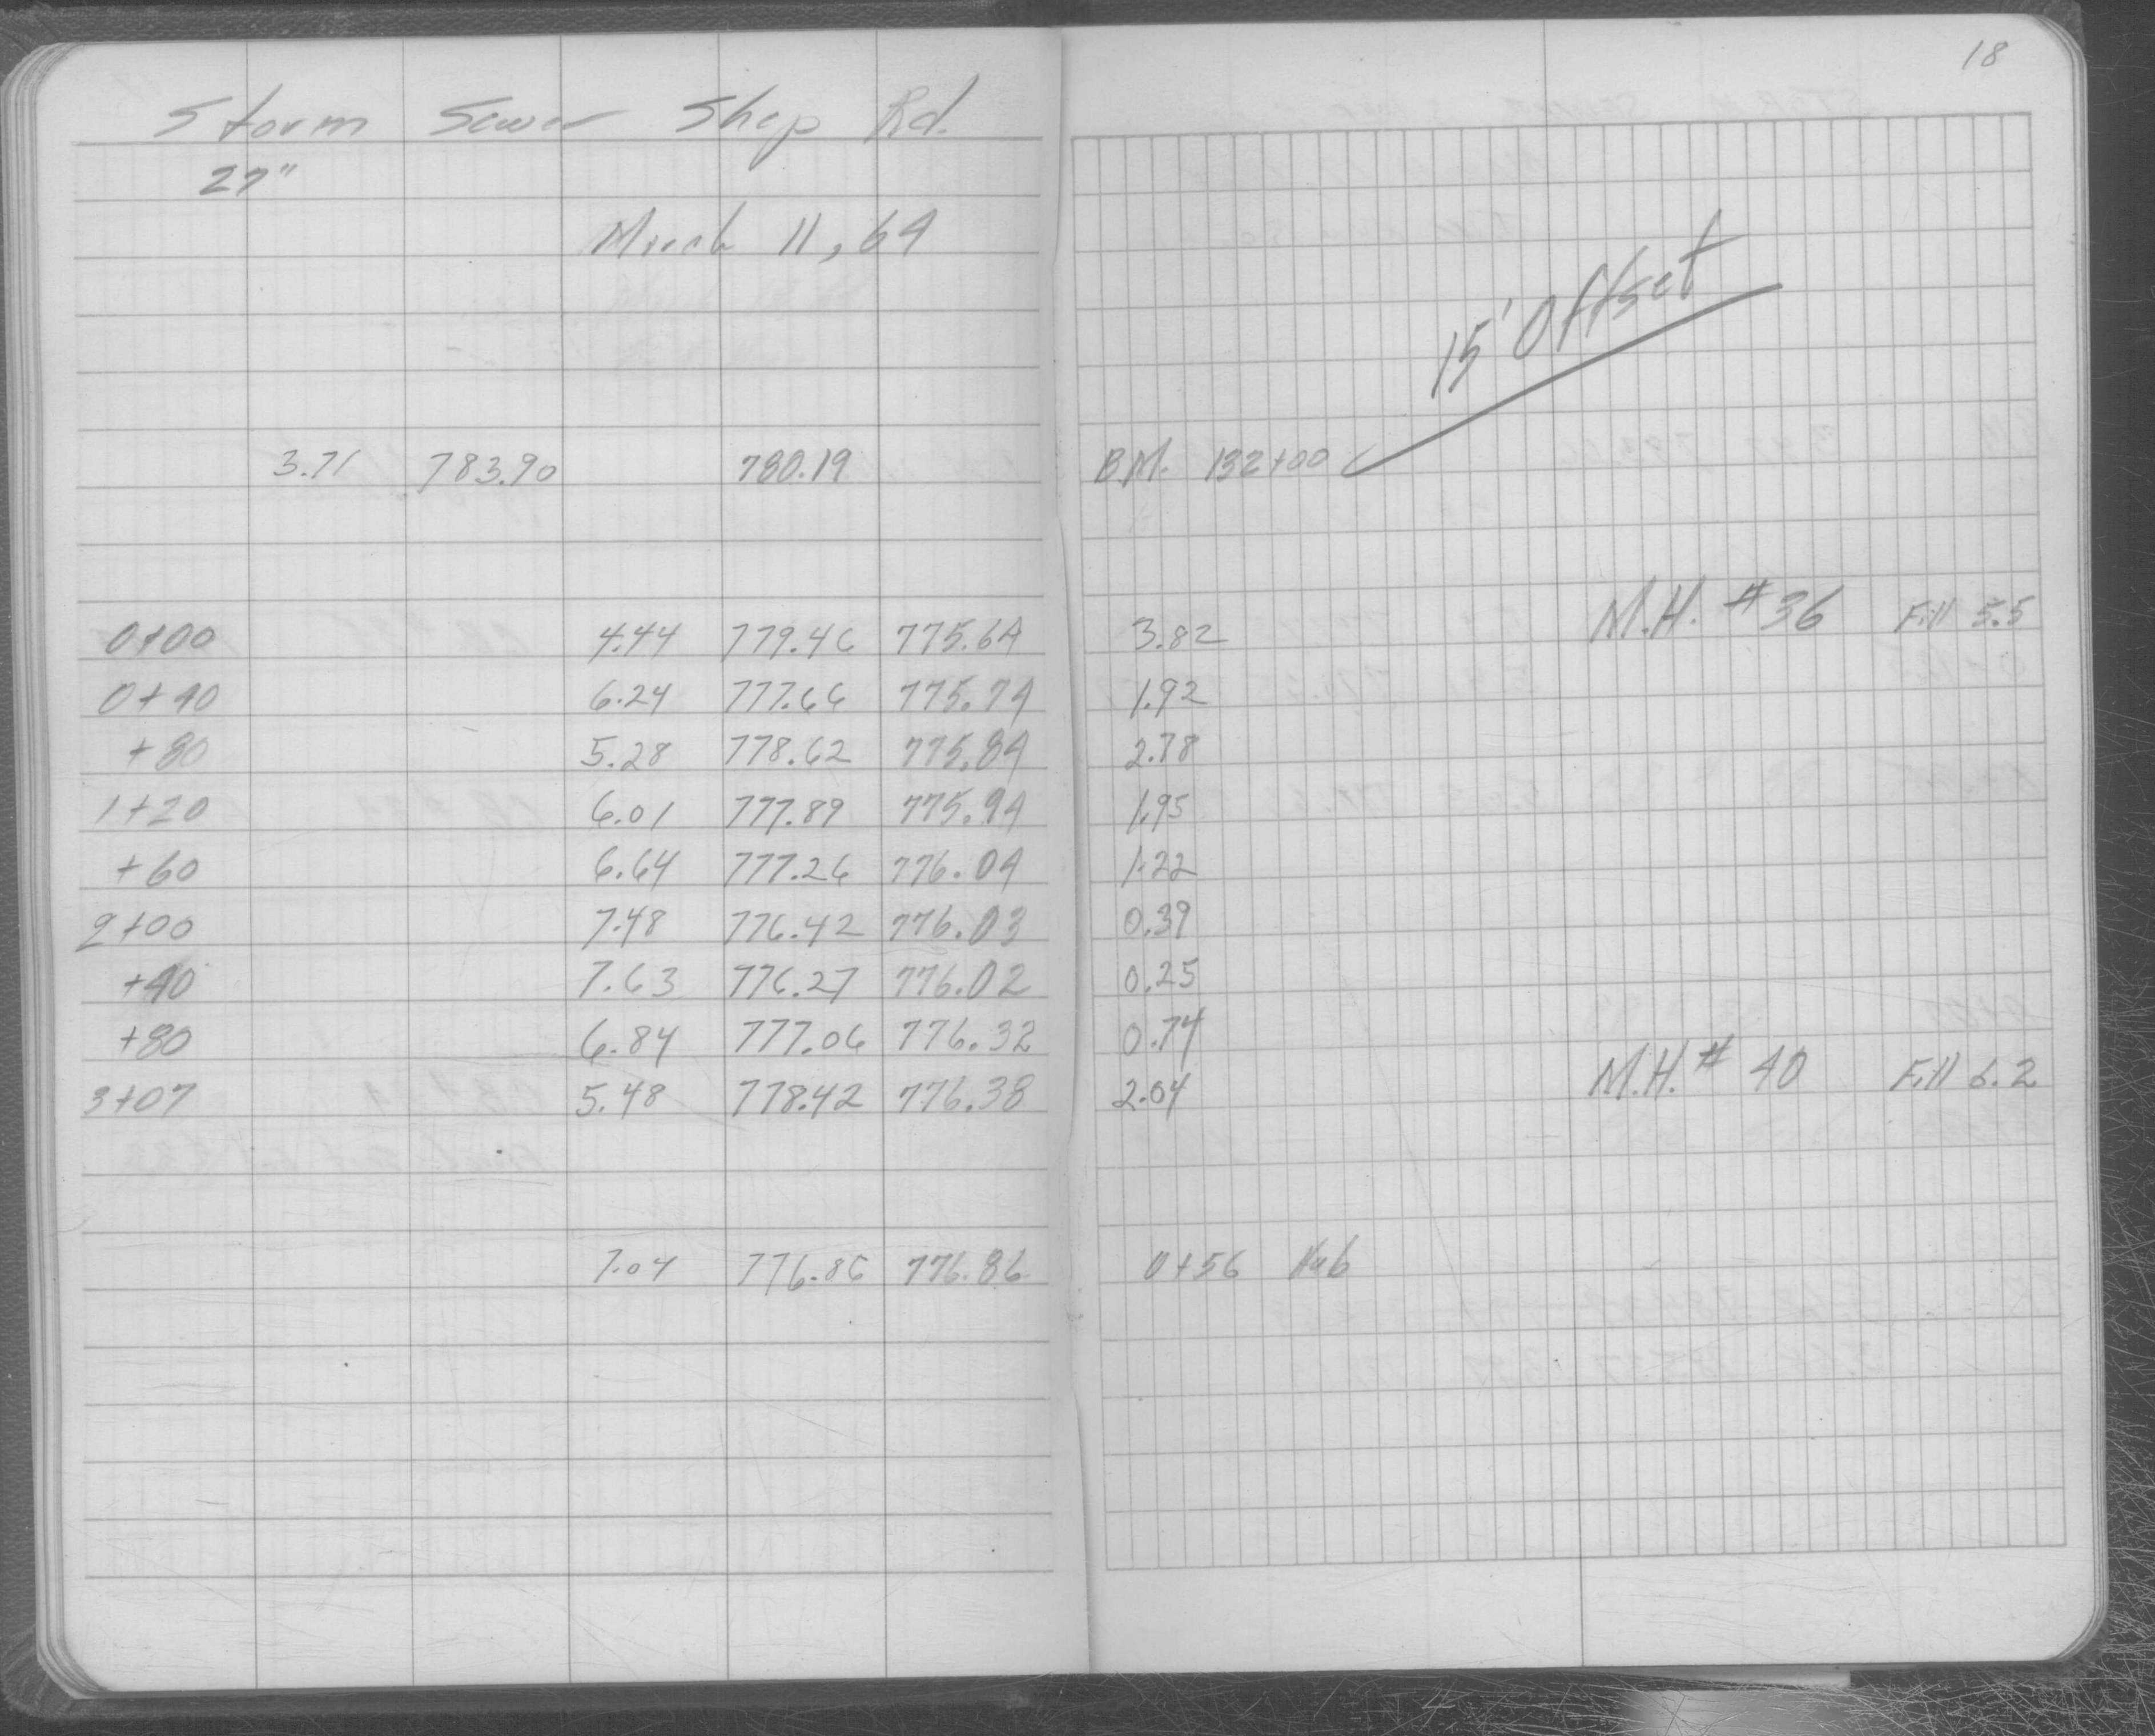 18
Storm Sewer Shop Rd.
27"
March 11, 64
15' Offset
3.71 783.90 780.19 B.M. 132+00
0+00 4.44 779.46 775.64 3.82 M.H. #36 Fill 5.5
0+40 6.24 777.66 775.74 1.92
+80 5.28 778.62 775.84 2.78
1+20 6.01 777.89 775.94 1.95
+60 6.64 777.26 776.04 1.22
2+00 7.48 776.42 776.03 0.39
+40 7.63 776.27 776.02 0.25
+80 6.84 777.06 776.32 0.74
3+07 5.48 778.42 776.38 2.04 M.H. # 40 Fill 6.2
7.04 776.86 776.86 0+56 Hub